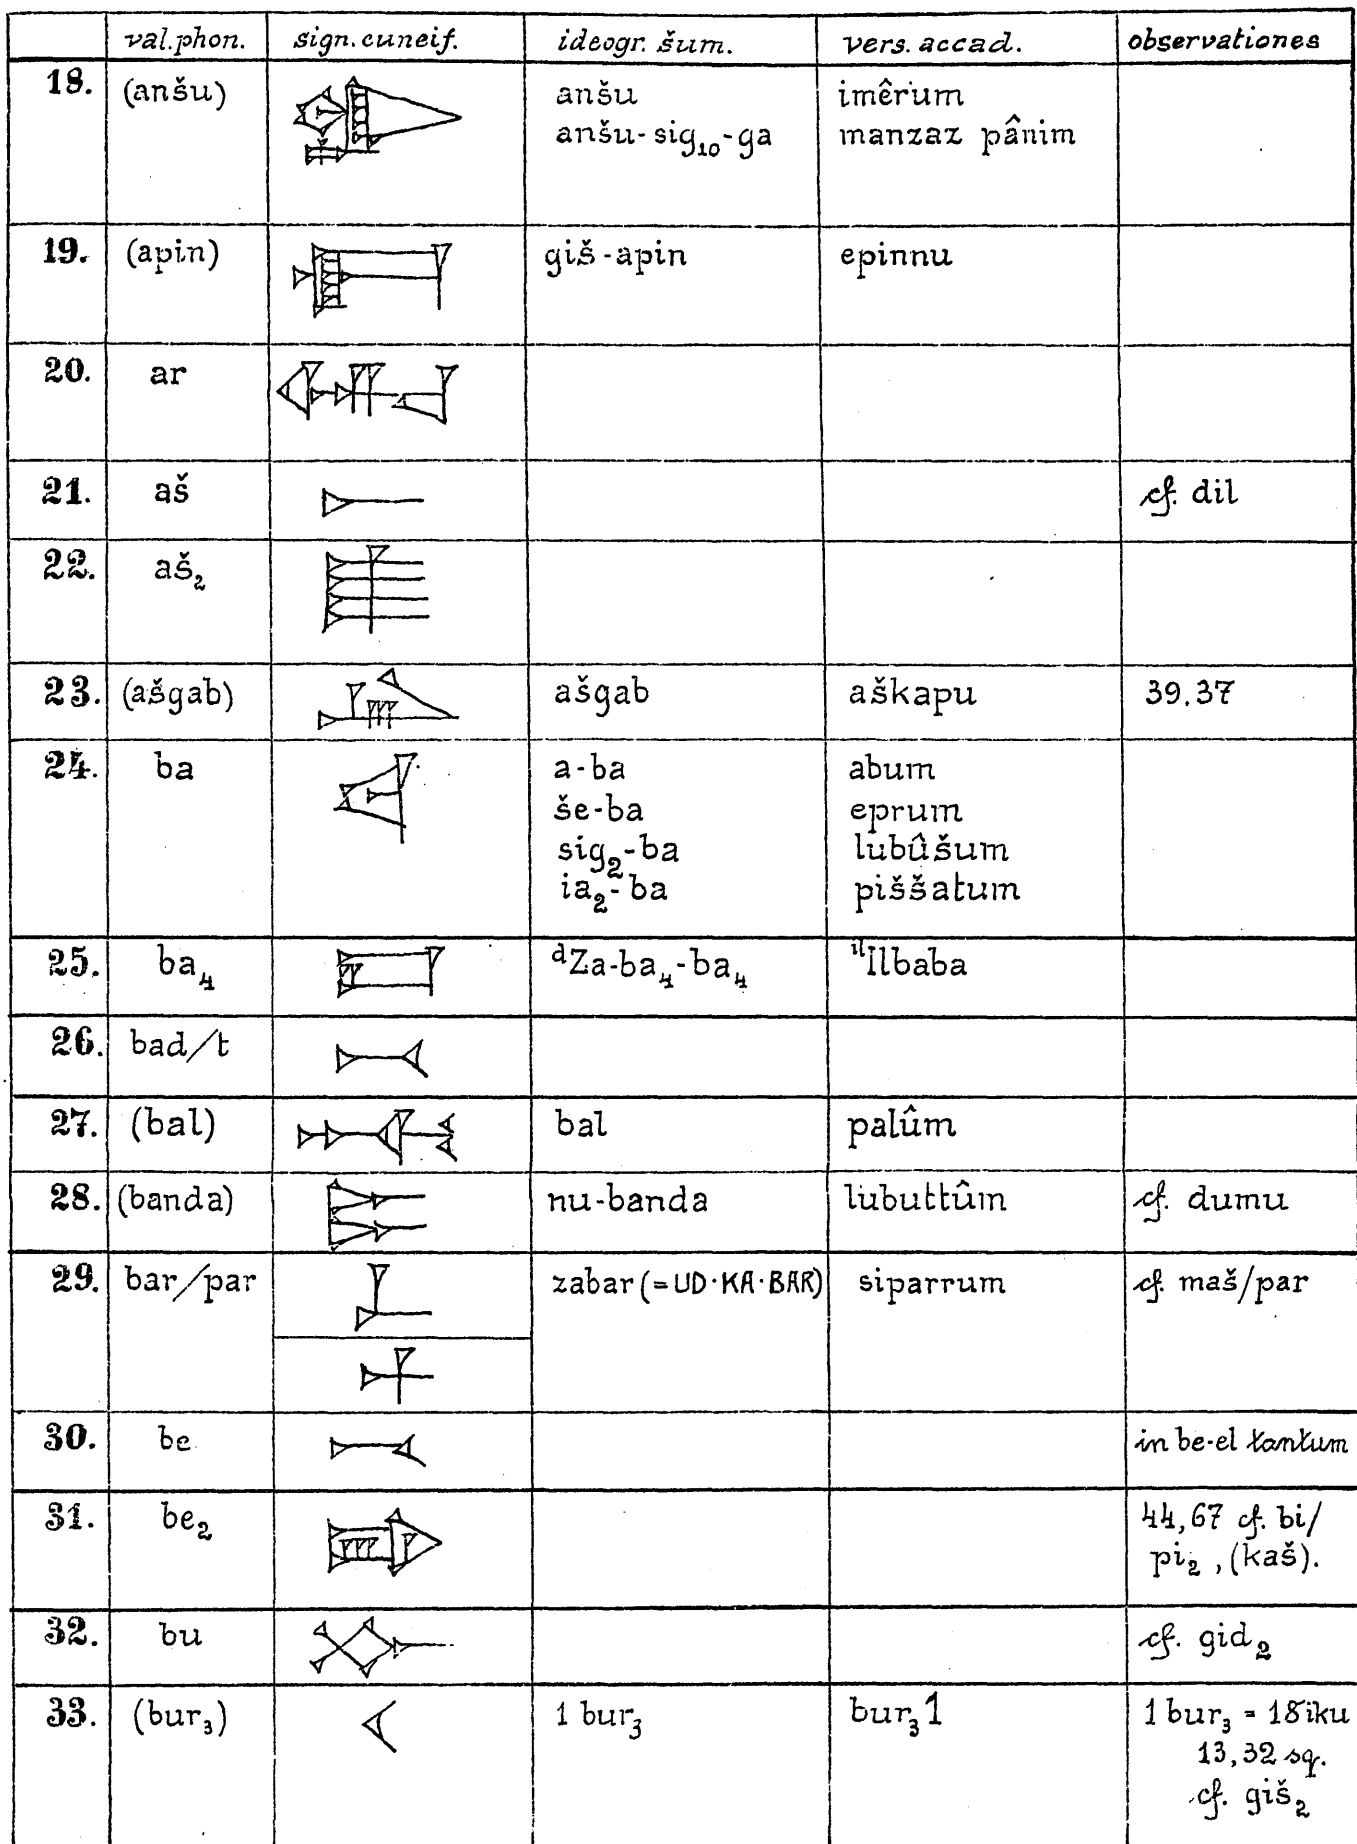 val.phon. sign.cuneif. ideogr. šum. vers. accad. observationes
18. (anšu) anšu imêrum
anšu-sig₁₀-ga manzaz pânim
19. (apin) giš-apin epinnu
20. ar
21. aš cf. dil
22. aš₂
23. (ašgab) ašgab aškapu 39.37
24. ba a-ba abum
še-ba eprum
sig₂-ba lubûšum
ia₂-ba piššatum
25. ba₄ ᵈZa-ba₄-ba₄ ⁱˡIlbaba
26. bad/t
27. (bal) bal palûm
28. (banda) nu-banda lubuttûm cf. dumu
29. bar/par zabar (=UD·KA·BAR) siparrum cf. maš/par
30. be in be-el tantum
31. be₂ 44,67 cf. bi/
pi₂, (kaš).
32. bu cf. gid₂
33. (bur₃) 1 bur₃ bur₃1 1 bur₃ = 18 iku
13,32 sq.
cf. giš₂